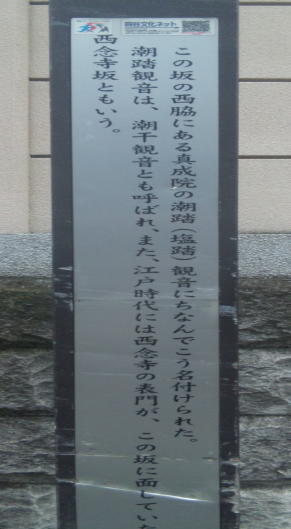 四谷文化ネット
この坂の西脇にある真成院の潮踏(塩踏)観音にちなんでこう名付けられた。
潮踏観音は、潮干観音とも呼ばれ、また、江戸時代には西念寺の表門が、この坂に面していた
西念寺坂ともいう。